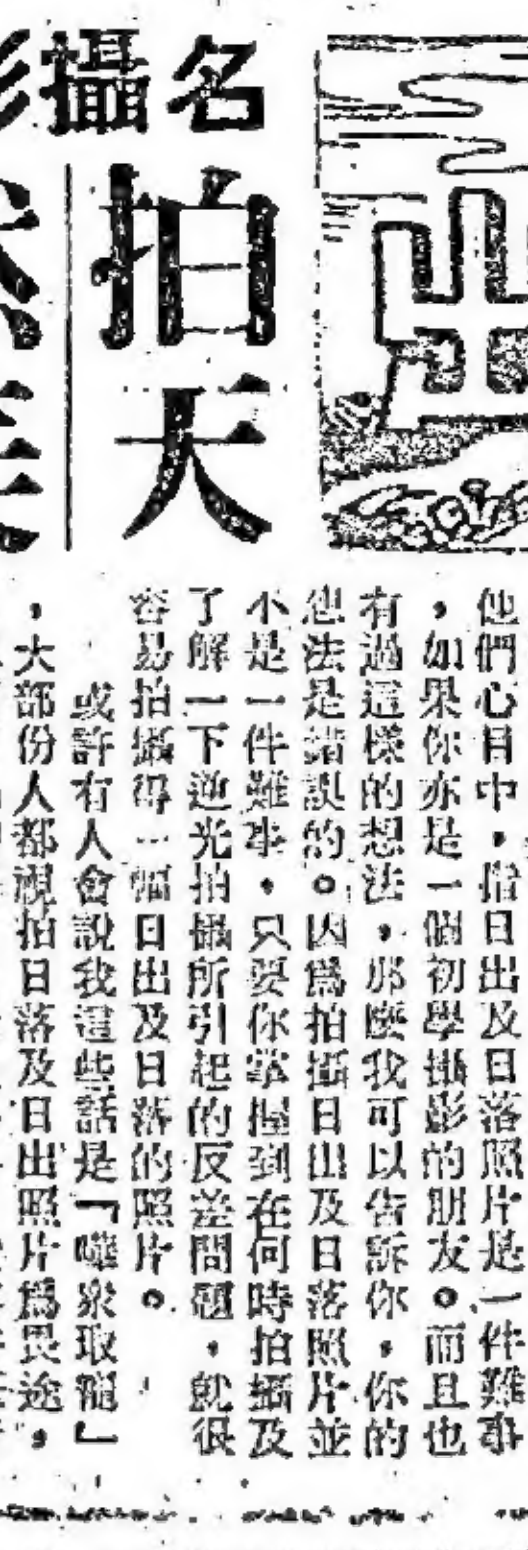 名攝影
拍天
他們心目中，指日出及日落照片是一件難事
，如果你亦是一個初學攝影的朋友。而且也
有過這樣的想法，那麼我可以告訴你，你的
想法是錯誤的。因爲拍攝日出及日落照片並
不是一件難事，只要你掌握到在何時拍攝及
了解一下逆光拍攝所引起的反差問題，就很
容易拍攝得一幅日出及日落的照片。
或許有人會說我這些話是『嘩衆取寵』
，大部份人都視拍日落及日出照片爲畏途，